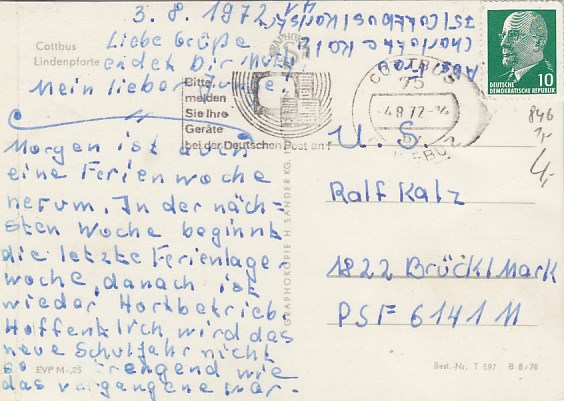 3. 8. 1972
Cottbus
Lindenpforte
Liebe Grüße
eidet Dir Mutti
Mein lieber Junge!
Morgen ist auch
eine Ferienwoche
herum. In der näch-
sten Woche beginnt
die letzte Ferienlager
woche, danach ist
wieder Hortbetrieb.
Hoffentlich wird das
neue Schuljahr nicht
so wie
das vergangene war.
EVP M-,25
Abs.:
Charlotte
75 Cottbus
Bitte
melden
Sie Ihre
Geräte
bei der Deutschen Post an!
COTTBUS
75
-4.8.72-14
DEUTSCHE
DEMOKRATISCHE REPUBLIK
10
846
1,-
GRAPHOKOPIE H. SANDER KG.
U. S.
Ralf Kalz
1822 Brück/Mark
PSF 6141 M
Best.-Nr. T 597 B 8/70